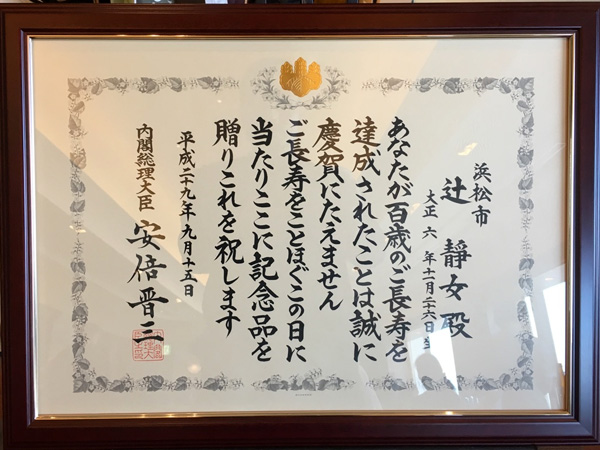 浜松市
辻 靜女殿
大正 六 年十一月二六日生
あなたが百歳のご長寿を
達成されたことは誠に
慶賀にたえません
ご長寿をことほぐこの日に
当たりここに記念品を
贈りこれを祝します
平成二十九年九月十五日
内閣総理大臣 安倍晋三